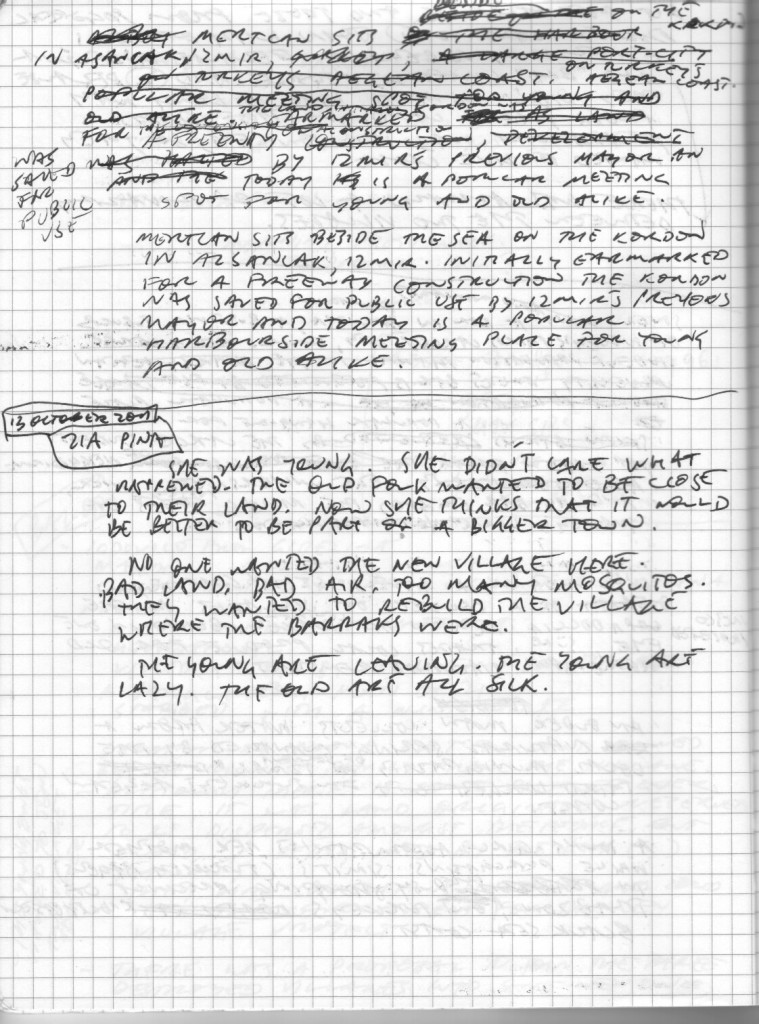 BESIDE ON THE
MERTCAN SITS THE HARBOUR KORDON
IN ALSANCAK, IZMIR, TURKEY, A LARGE PORT-CITY
ON TURKEY'S AEGEAN COAST. ON TURKEY'S AEGEAN COAST.
POPULAR MEETING SPOT TOO YOUNG AND
OLD ALIKE. THE KORDON WAS EARMARKED AS LAND
FOR A FREEWAY CONSTRUCTION, DEVELOPMENT
WAS
SAVED
FOR
PUBLIC
USE
WAS HALTED BY IZMIR'S PREVIOUS MAYOR AN
AND THE TODAY IS A POPULAR MEETING
SPOT FOR YOUNG AND OLD ALIKE.
MERTCAN SITS BESIDE THE SEA ON THE KORDON
IN ALSANCAK, IZMIR. INITIALLY EARMARKED
FOR A FREEWAY CONSTRUCTION THE KORDON
WAS SAVED FOR PUBLIC USE BY IZMIR'S PREVIOUS
MAYOR AND TODAY IS A POPULAR
HARBOURSIDE MEETING PLACE FOR YOUNG
AND OLD ALIKE.
13 OCTOBER 2011
ZIA PINA
SHE WAS YOUNG. SHE DIDN'T CARE WHAT
HAPPENED. THE OLD FOLK WANTED TO BE CLOSE
TO THEIR LAND. NOW SHE THINKS THAT IT WOULD
BE BETTER TO BE PART OF A BIGGER TOWN.
NO ONE WANTED THE NEW VILLAGE HERE.
BAD LAND, BAD AIR, TOO MANY MOSQUITOS.
THEY WANTED TO REBUILD THE VILLAGE
WHERE THE BARRAKS WERE.
THE YOUNG ARE LEAVING. THE YOUNG ARE
LAZY. THE OLD ARE ALL SICK.